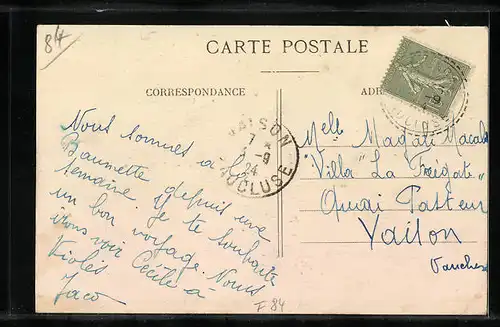 84
CARTE POSTALE
CORRESPONDANCE
ADR
VAISON
7 *
-9
24
VAUCLUSE
Nous sommes à la
Baumette depuis une
semaine. Je te souhaite
un bon voyage. Nous
irons voir Cécile à
Violès
Jaco
Melle Magali
"Villa "La Frégate"
Quai Pasteur
Vaison
Vaucluse
F 84